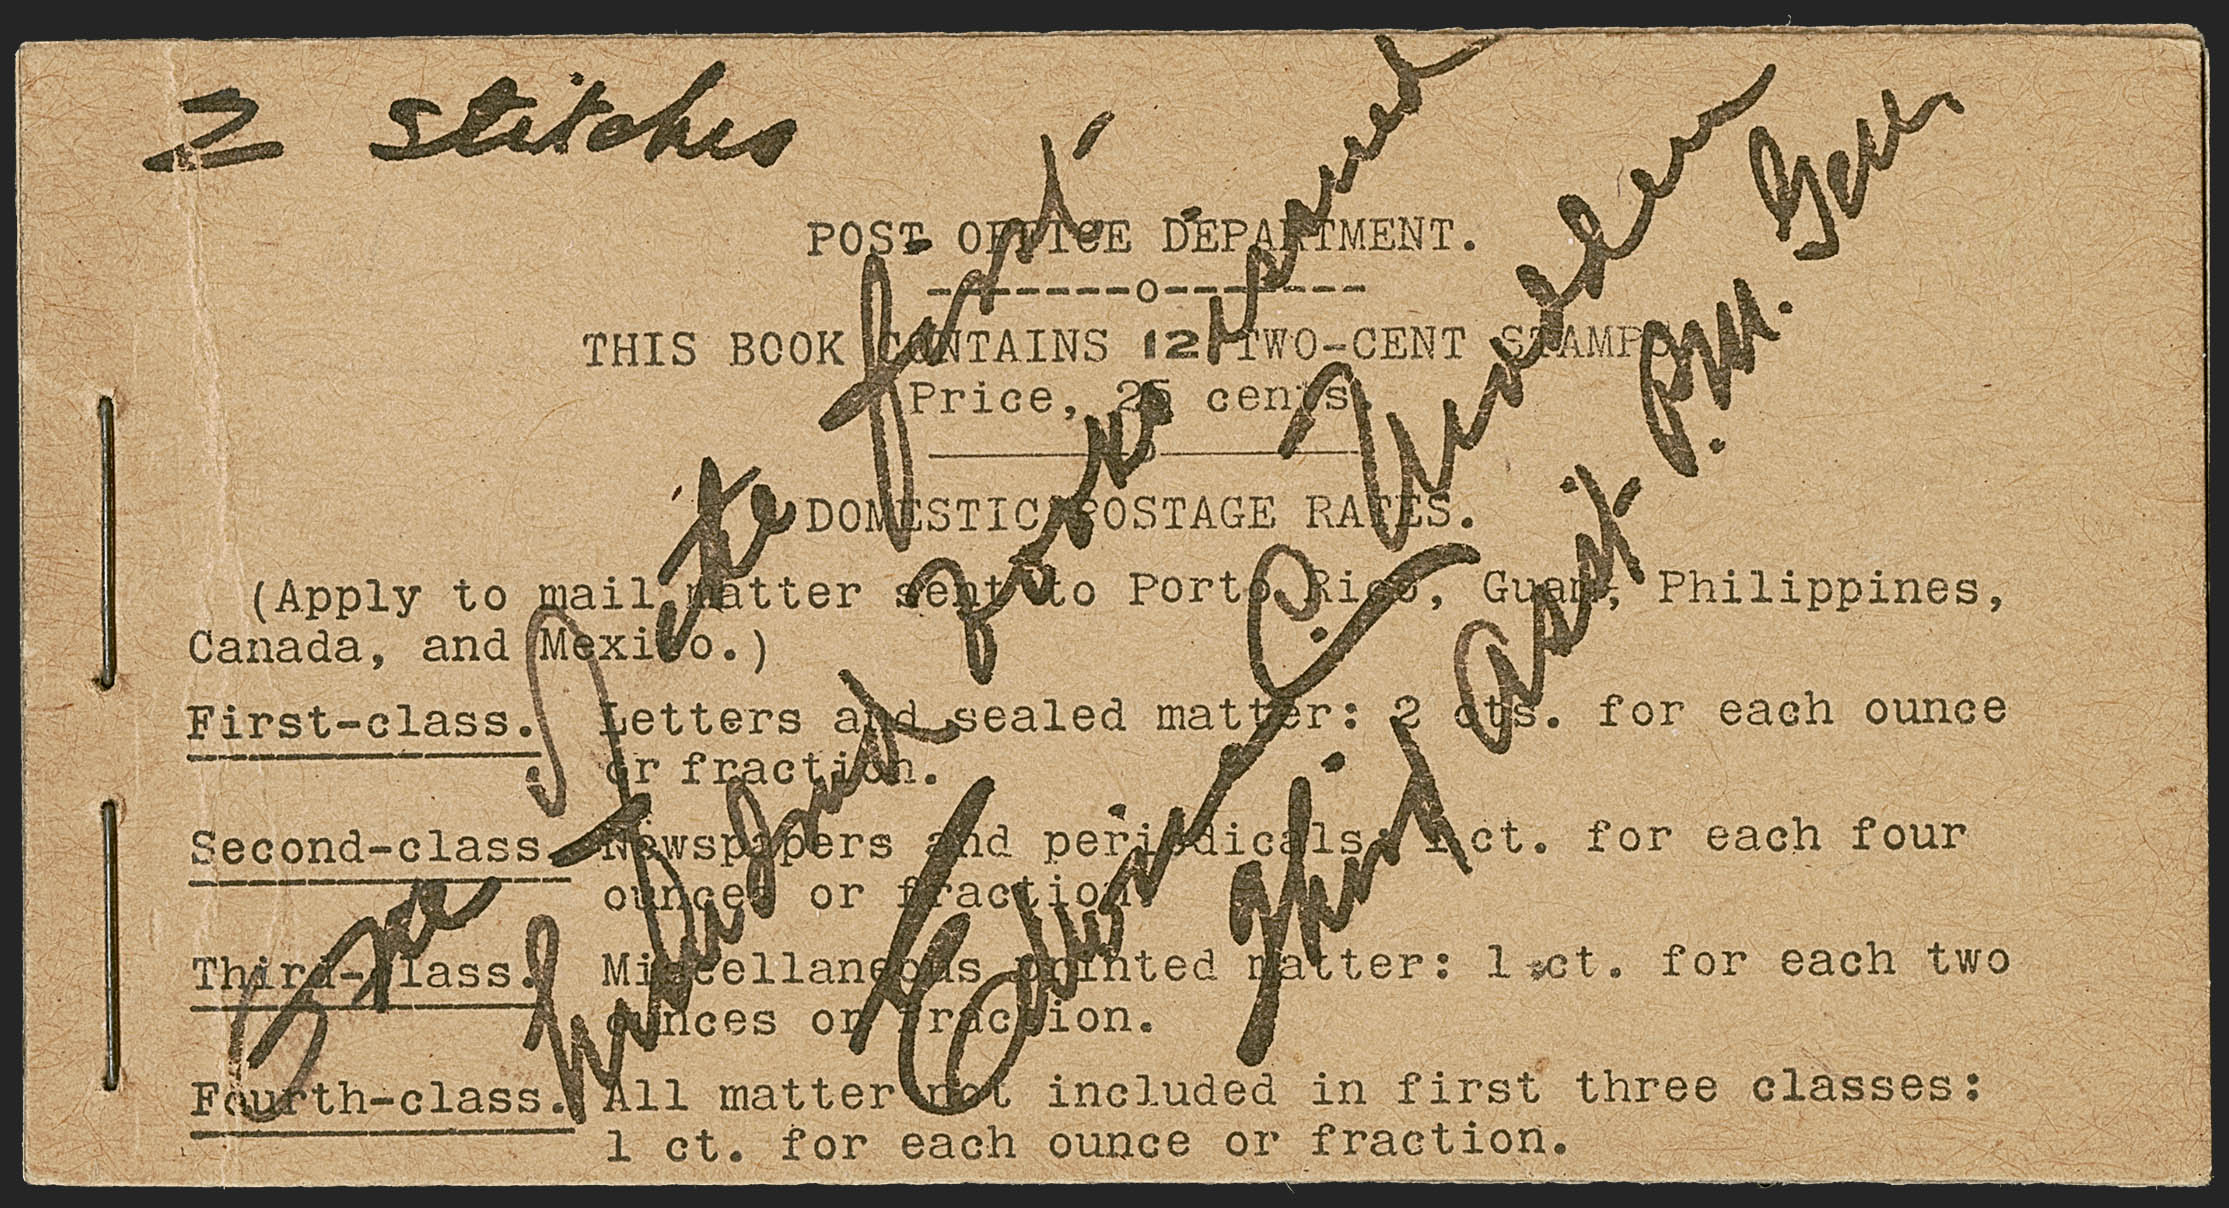 2 stitches
POST OFFICE DEPARTMENT.
-------o-------
THIS BOOK CONTAINS 12 TWO-CENT STAMPS
Price, 25 cents.
DOMESTIC POSTAGE RATES.
(Apply to mail matter sent to Porto Rico, Guam, Philippines,
Canada, and Mexico.)
First-class. Letters and sealed matter: 2 cts. for each ounce
or fraction.
Second-class. Newspapers and periodicals: 1 ct. for each four
ounces or fraction.
Third-class. Miscellaneous printed matter: 1 ct. for each two
ounces or fraction.
Fourth-class. All matter not included in first three classes:
1 ct. for each ounce or fraction.
hundred issued
Edwin C. Madden
Third Asst. P.M. Gen.